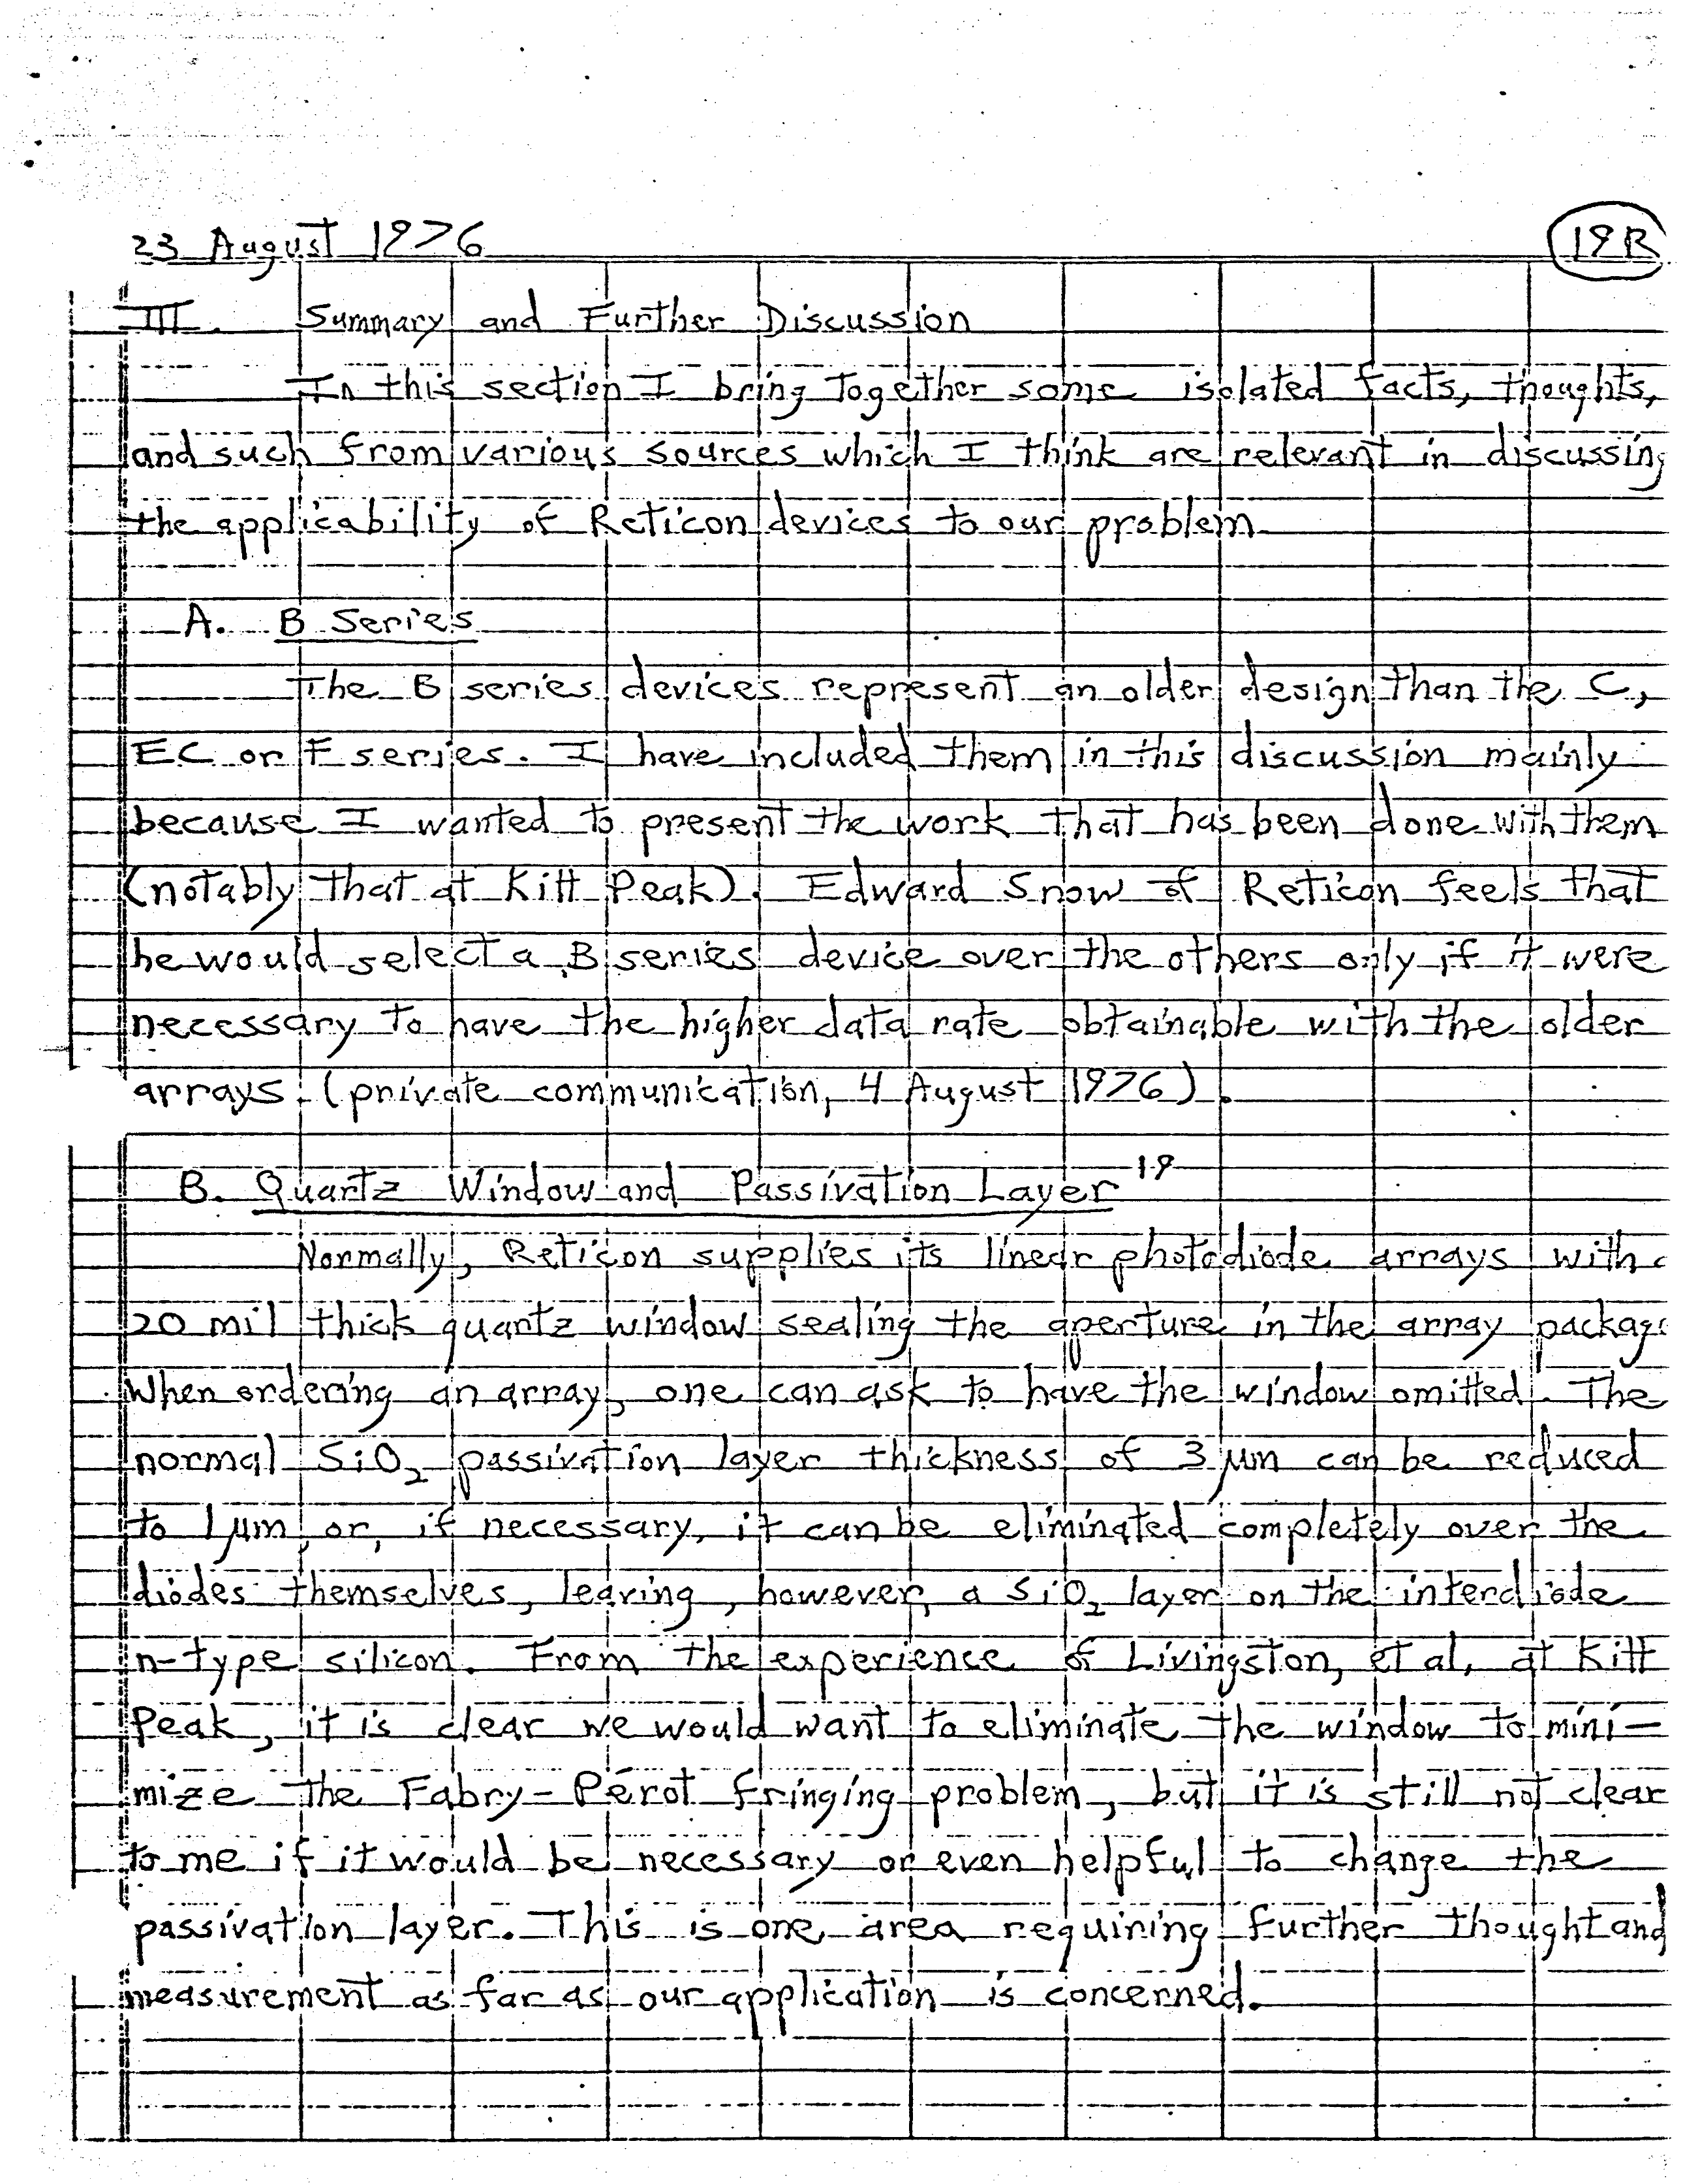 23 August 1976
19R
III. Summary and Further Discussion
In this section I bring together some isolated facts, thoughts,
and such from various sources which I think are relevant in discussing
the applicability of Reticon devices to our problem
A. B Series
The B series devices represent an older design than the C,
EC or F series. I have included them in this discussion mainly
because I wanted to present the work that has been done with them
(notably that at Kitt Peak). Edward Snow of Reticon feels that
he would select a B series device over the others only if it were
necessary to have the higher data rate obtainable with the older
arrays (private communication, 4 August 1976).
B. Quartz Window and Passivation Layer 19
Normally, Reticon supplies its linear photodiode arrays with a
20 mil thick quartz window sealing the aperture in the array package
When ordering an array, one can ask to have the window omitted. The
normal SiO₂ passivation layer thickness of 3 μm can be reduced
to 1 μm, or, if necessary, it can be eliminated completely over the
diodes themselves, leaving, however, a SiO₂ layer on the interdiode
n-type silicon. From the experience of Livingston, et al, at Kitt
Peak, it is clear we would want to eliminate the window to mini-
mize the Fabry-Perot fringing problem, but it is still not clear
to me if it would be necessary or even helpful to change the
passivation layer. This is one area requiring further thought and
measurement as far as our application is concerned.